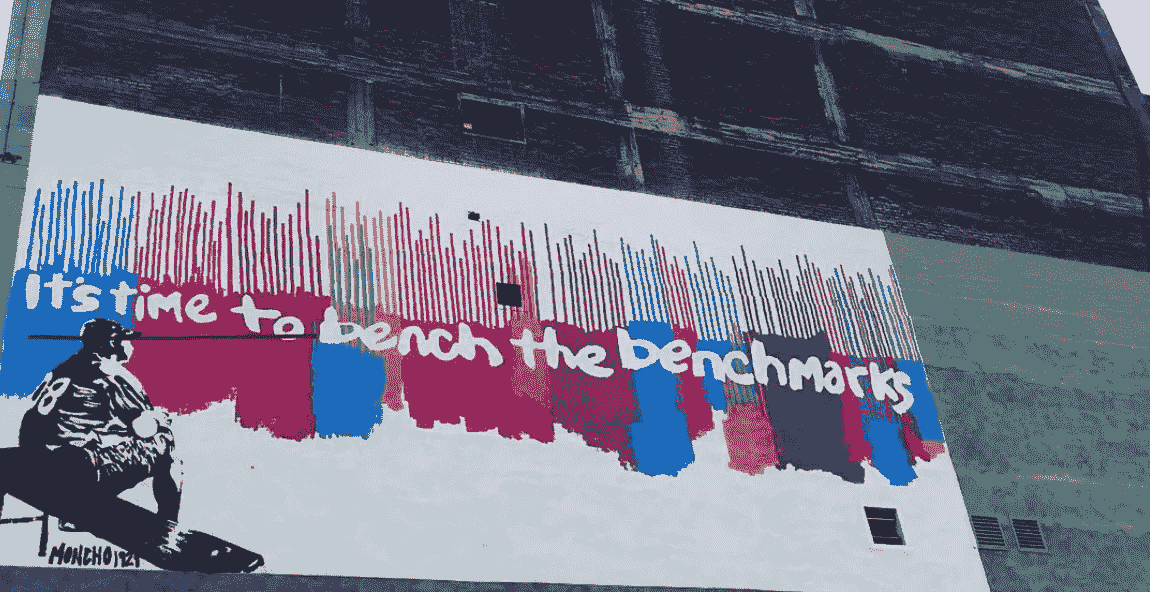 It's time to bench the benchmarks
18
MONCHO1929